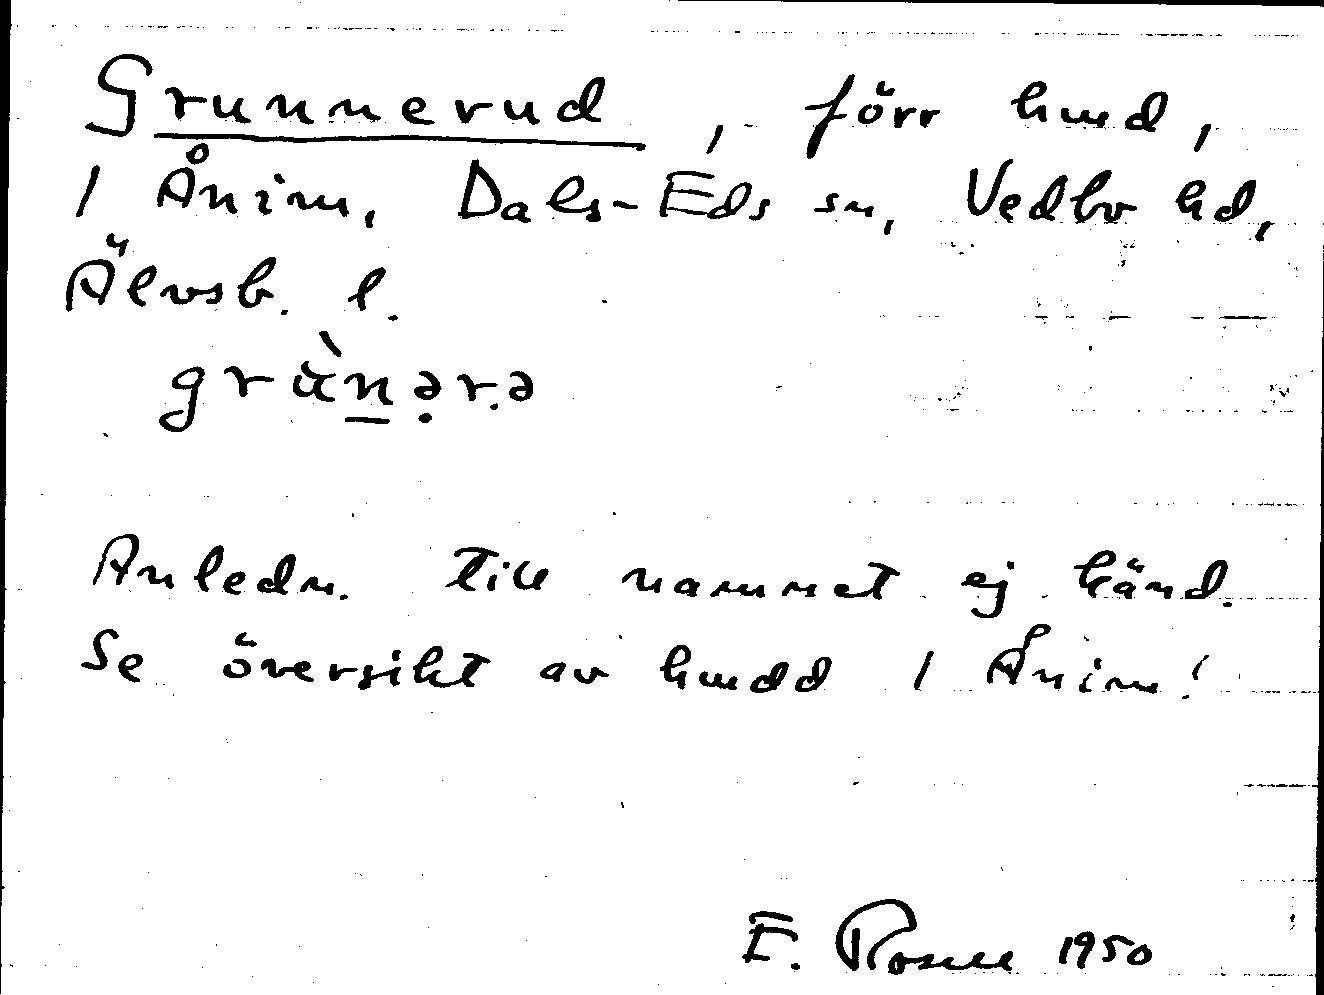 Grunnerud, förr hmd,
1 Ånim, Dals-Eds sn, Vedbo hd,
Älvsb. l.
grùn̲ə̣r.ə
Anledn. till namnet ej känd.
Se översikt av hmdd 1 Ånim!
E. 1950